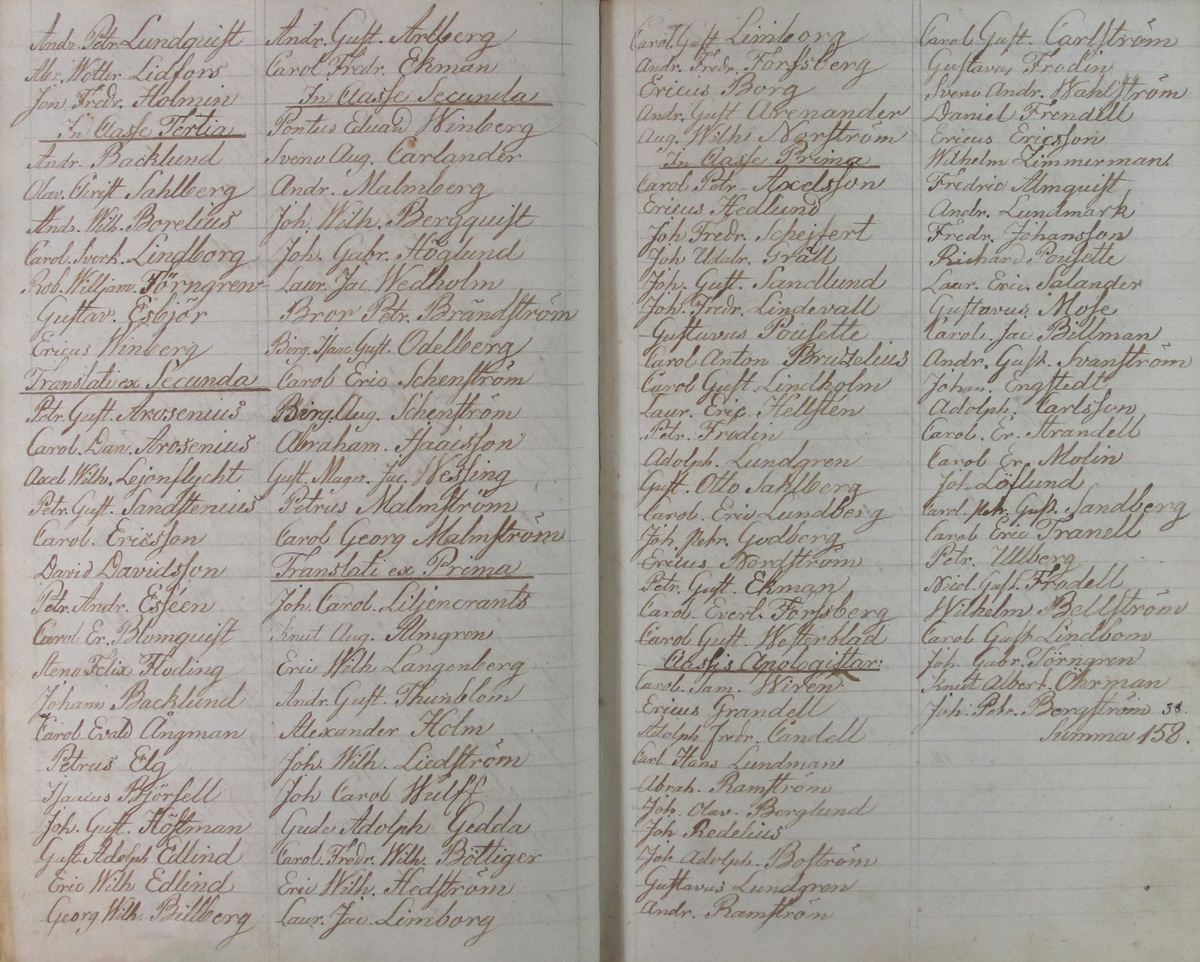 Andr. Petr. Lundquist
Alex. Wolter Lidfors
Jon Fredr. Holmin
In Classe Tertia
Andr. Backlund
Olav. Christ. Sahlberg
Andr. Wilh. Borelius
Carol. Sverk. Lindborg
Rob. Williams Förngren
Gustav. Esbjör
Ericus Winberg
Translati ex Secunda
Petr. Gust. Arosenius
Carol. Dan. Arosenius
Axel Wilh. Lejonflycht
Petr. Gust. Sandstenius
Carol. Ericsson
David Davidsson
Petr. Andr. Eséen
Carol Er. Blomquist
Steno Felix Floding
Johann Backlund
Carol Evald Ångman
Petrus Elg
Isaacus Björsell
Joh. Gust. Höstman
Gust. Adolph Edlind
Eric Wilh Edlind
Georg Wilh. Billberg
Andr. Gust. Arlberg
Carol Fredr. Ekman
In Classe Secunda
Pontus Eduard Winberg
Sveno Aug. Carlander
Andr. Malmberg
Joh. Wilh. Bergquist
Joh. Gabr. Höglund
Laur. Jac. Wedholm
Bror Petr. Brändström
Birg. Isaac Gust. Odelberg
Carol Eric Schenström
Birg. Aug. Schenström
Abraham. Isacsson
Gust. Magn. Jac. Wessing
Petrus Malmström
Carol Georg Malmström
Translati ex Prima
Joh. Carol. Liljencrants
Knut Aug. Almgren
Eric Wilh Langenberg
Andr. Gust. Thunblom
Alexander Holm
Joh. Wilh. Liedström
Joh Carol Wulff
Gude Adolph Gedda
Carol. Fredr. Wilh. Böttiger
Eric Wilh. Hedström
Laur. Jac. Limborg
Carol. Gust Limborg
Andr. Fredr. Forssberg
Ericus Borg
Andr. Gust Arenander
Aug. Wilh Norström
In Classe Prima
Carol Petr. Axelsson
Ericus Hedlund
Joh Fredr. Scheffert
Joh Udalr. Gräll
Joh. Gust. Sandlund
Joh. Fredr. Lindevall
Gustavus Pousette
Carol Anton Bruzelius
Carol Gust. Lindholm
Laur. Eric Hellsten
Petr. Frodin
Adolph. Lundgren
Gust. Otto Sahlberg
Carol. Eric Lundberg
Joh. Petr. Godberg
Ericus Nordström
Petr. Gust. Ekman
Carol. Evert. Forssberg
Carol Gust. Westerblad
Classis Apologistar:
Carol. Sam. Wiren
Ericus Grandell
Adolph Fredr. Candell
Carl Hans Lundman
Abrah. Ramström
Joh. Olav. Berglund
Joh. Redelius
Joh Adolph. Boström
Gustavus Lundgren
Andr. Ramström
Carol Gust. Carlström
Gustavus Frodin
Sveno Andr. Wahlström
Daniel Frendell
Ericus Ericsson
Wilhelm Zimmerman
Fredric Almquist
Andr. Lundmark
Fredr. Johansson
Richard Pousette
Laur. Eric. Salander
Gustavus Mose
Carol. Jac Billman
Andr. Gust. Svanström
Johan. Engstedt
Adolph. Carlsson
Carol. Er. Strandell
Carol Er. Molin
Joh. Löflund
Carol. Petr. Gust. Sandberg
Carol Eric Tranell
Petr. Ullberg
Nicol. Gust. Frodell
Wilhelm Bellström
Carol Gust Lindbom
Joh. Gabr. Törngren
Knut Albert. Öhrman
Joh. Petr. Bergström 38.
Summa 158.